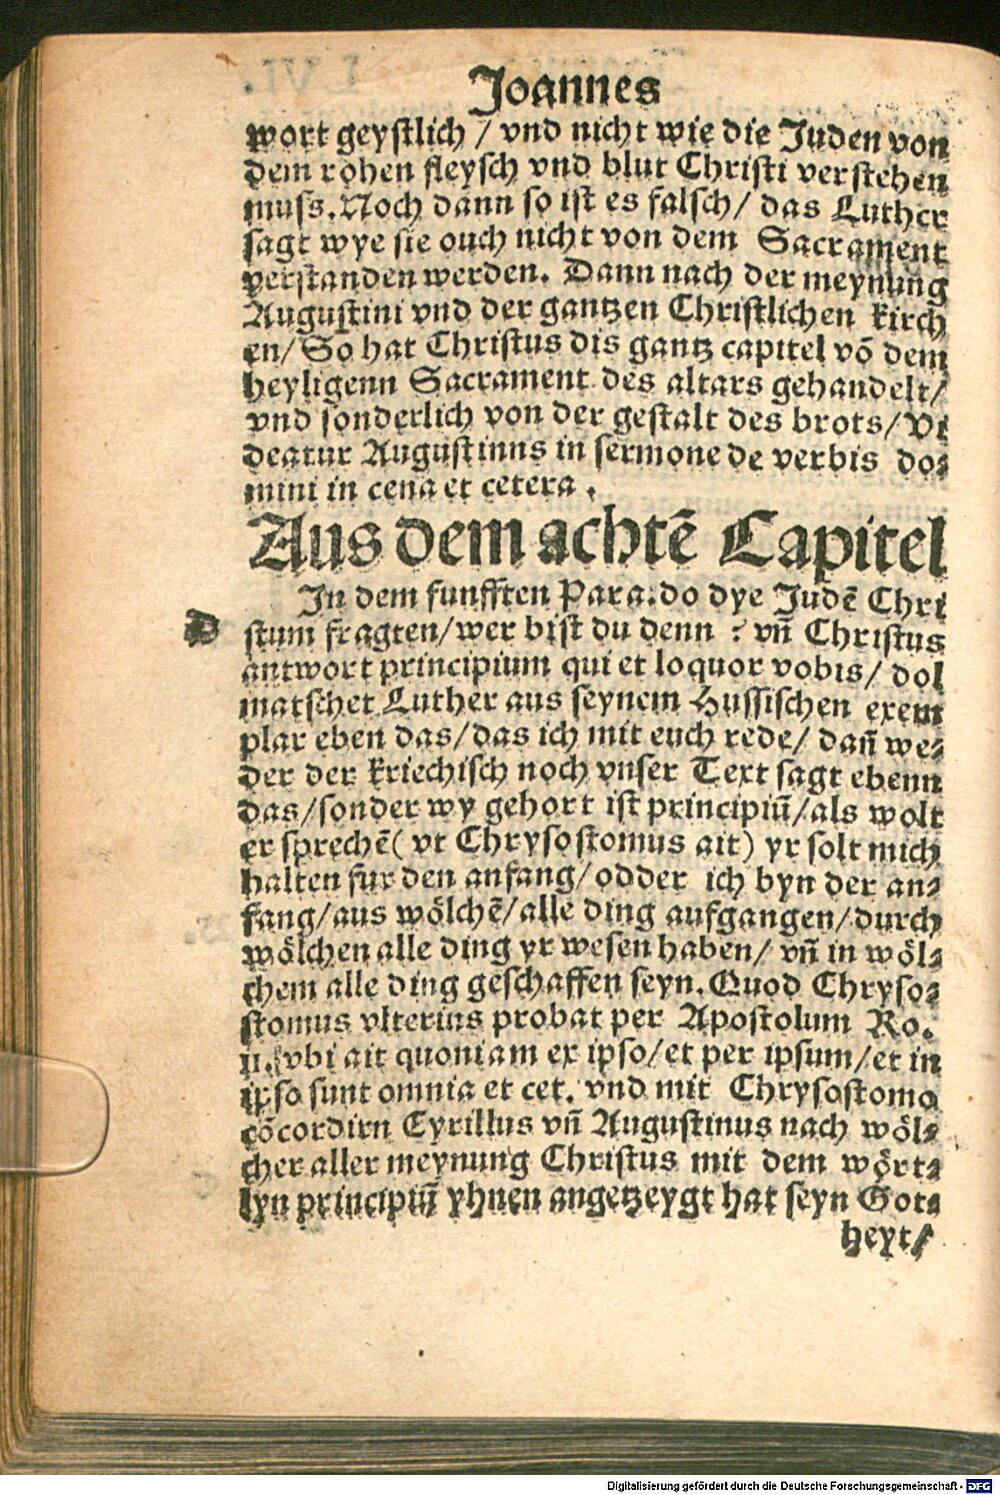 Joannes
wort geystlich / vnd nicht wie die Juden von
dem rohen fleysch vnd blut Christi verstehen
muss. Noch dann so ist es falsch / das Luther
sagt wye sie ouch nicht von dem Sacrament
verstanden werden. Dann nach der meynung
Augustini vnd der gantzen Christlichen kirch
en / So hat Christus dis gantz capitel võ dem
heyligenn Sacrament des altars gehandelt /
vnd sonderlich von der gestalt des brots / Vi
deatur Augustinns in sermone de verbis do⸗
mini in cena et cetera .
Aus dem achtẽ Capitel
In dem funfften Para. do dye Judẽ Chri
D
stum fragten / wer bist du denn ? vñ Christus
antwort principium qui et loquor vobis / dol
matschet Luther aus seynem Hussischen exem
plar eben das / das ich mit euch rede / dañ we⸗
der der kriechisch noch vnser Text sagt ebenn
das / sonder wy gehort ist principiũ / als wolt
er sprechẽ ( vt Chrysostomus ait ) yr solt mich
halten fur den anfang / odder ich byn der an⸗
fang / aus wölchẽ / alle ding aufgangen / durch
wölchen alle ding yr wesen haben / vñ in wöl⸗
chem alle ding geschaffen seyn. Quod Chryso⸗
stomus vlterius probat per Apostolum Ro.
ii. vbi ait quoniam ex ipso / et per ipsum / et in
ipso sunt omnia et cet. vnd mit Chrysostomo
cõcordirn Cyrillus vñ Augustinus nach wöl⸗
cher aller meynung Christus mit dem wört⸗
lyn principiũ yhnen angetzeygt hat seyn Got⸗
heyt /
Digitalisierung gefördert durch die Deutsche Forschungsgemeinschaft - DFG